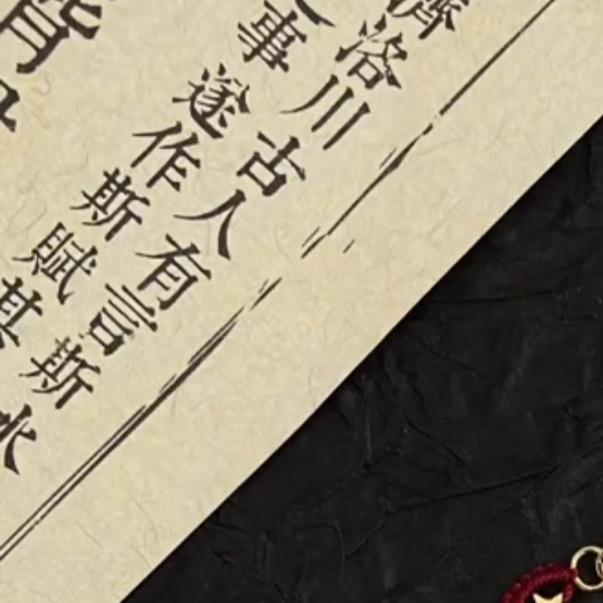 濟洛川古人有言斯水
事遂作斯賦其
背